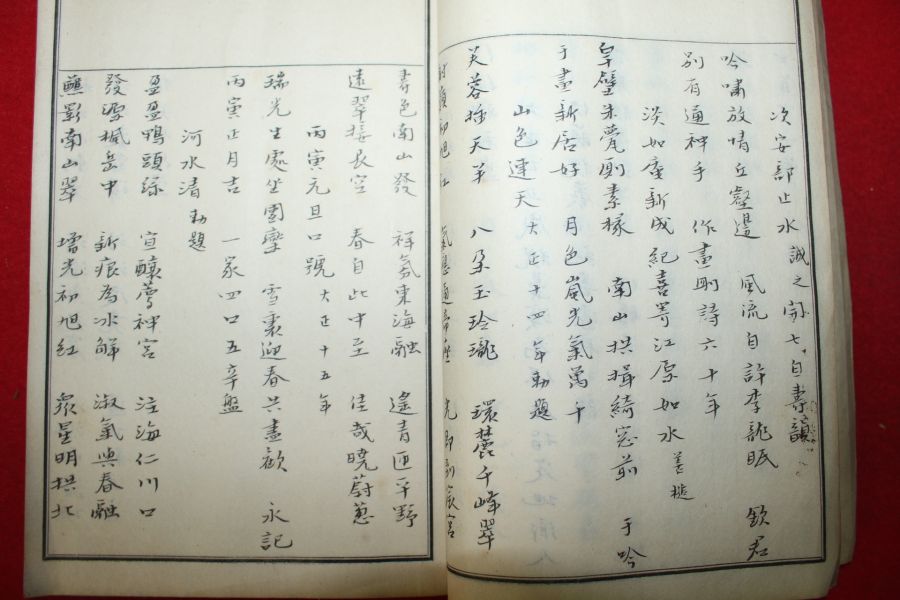 次安部止水 誠之 七自壽韻
吟嘯放情丘壑邊 風流自許李龍眠 欽君
別有通神手 作畫賦詩六十年
淡如庵新成紀喜寄江原如水 善槌
皁璧朱甍劂素椽 南山拱揖綺窓前 于吟
于畫新居好 月色嵐光氣萬千
山色連天 大正十四年勅題
芙蓉插天半 八朶玉玲瓏 環麓千峰翠
初旭紅 氣 通帝座 光 宸宮
壽色南山發 祥氛東海融 遙青匝平野
遠翠接長空 春自此中至 佳哉曉蔚蔥
丙寅元旦口號 大正十五年
瑞光生處坐團欒 雪裏迎春共盡歡 永記
丙寅正月吉 一家四口五辛盤
河水清 勅題
盈盈鴨頭綠 宣釀蕚神宮 注海仁川口
發源楓岳中 新痕為冰解 淑氣與春融
蘸影南山翠 增光初旭紅 衆星明拱北